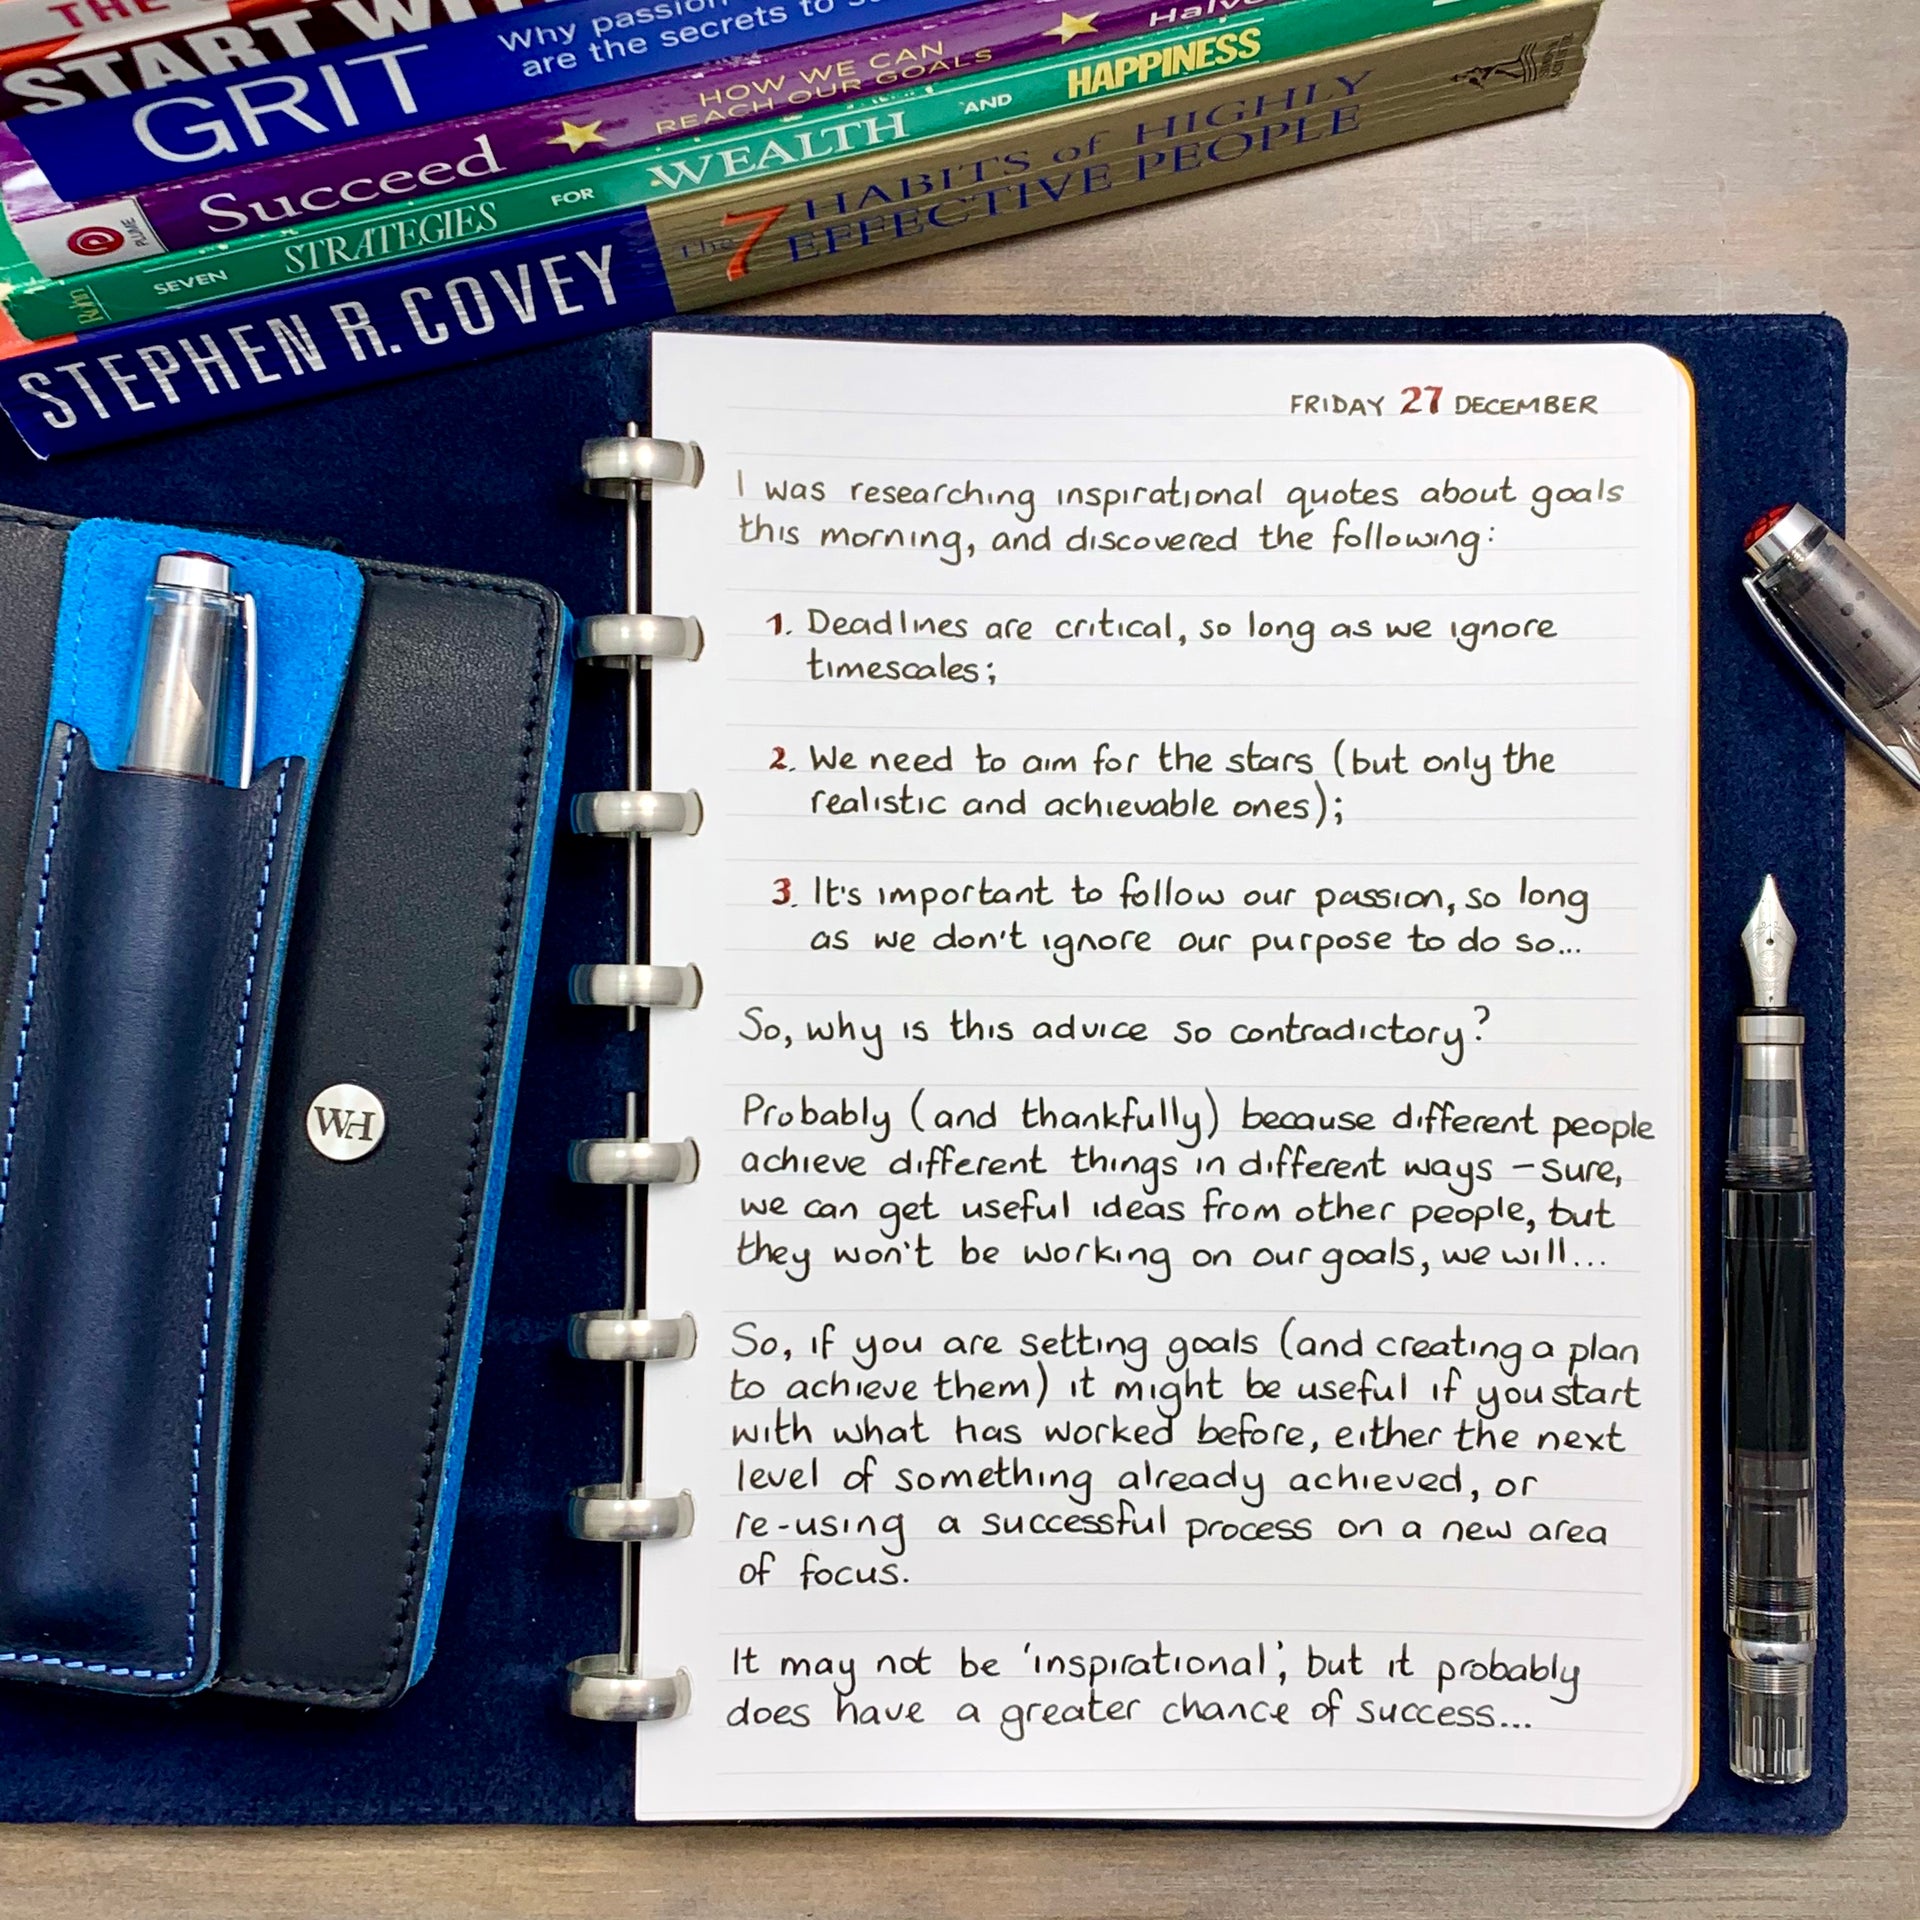 THE
START WITH
GRIT Why passion
are the secrets to
Succeed HOW WE CAN
REACH OUR GOALS
PLUME
Rohn SEVEN STRATEGIES FOR WEALTH AND HAPPINESS
STEPHEN R. COVEY The 7 HABITS of HIGHLY
EFFECTIVE PEOPLE
FRIDAY 27 DECEMBER
I was researching inspirational quotes about goals
this morning, and discovered the following:
1. Deadlines are critical, so long as we ignore
timescales;
2. We need to aim for the stars (but only the
realistic and achievable ones);
3. It's important to follow our passion, so long
as we don't ignore our purpose to do so...
So, why is this advice so contradictory?
Probably (and thankfully) because different people
achieve different things in different ways – sure,
we can get useful ideas from other people, but
they won't be working on our goals, we will...
So, if you are setting goals (and creating a plan
to achieve them) it might be useful if you start
with what has worked before, either the next
level of something already achieved, or
re-using a successful process on a new area
of focus.
It may not be 'inspirational', but it probably
does have a greater chance of success...
WH